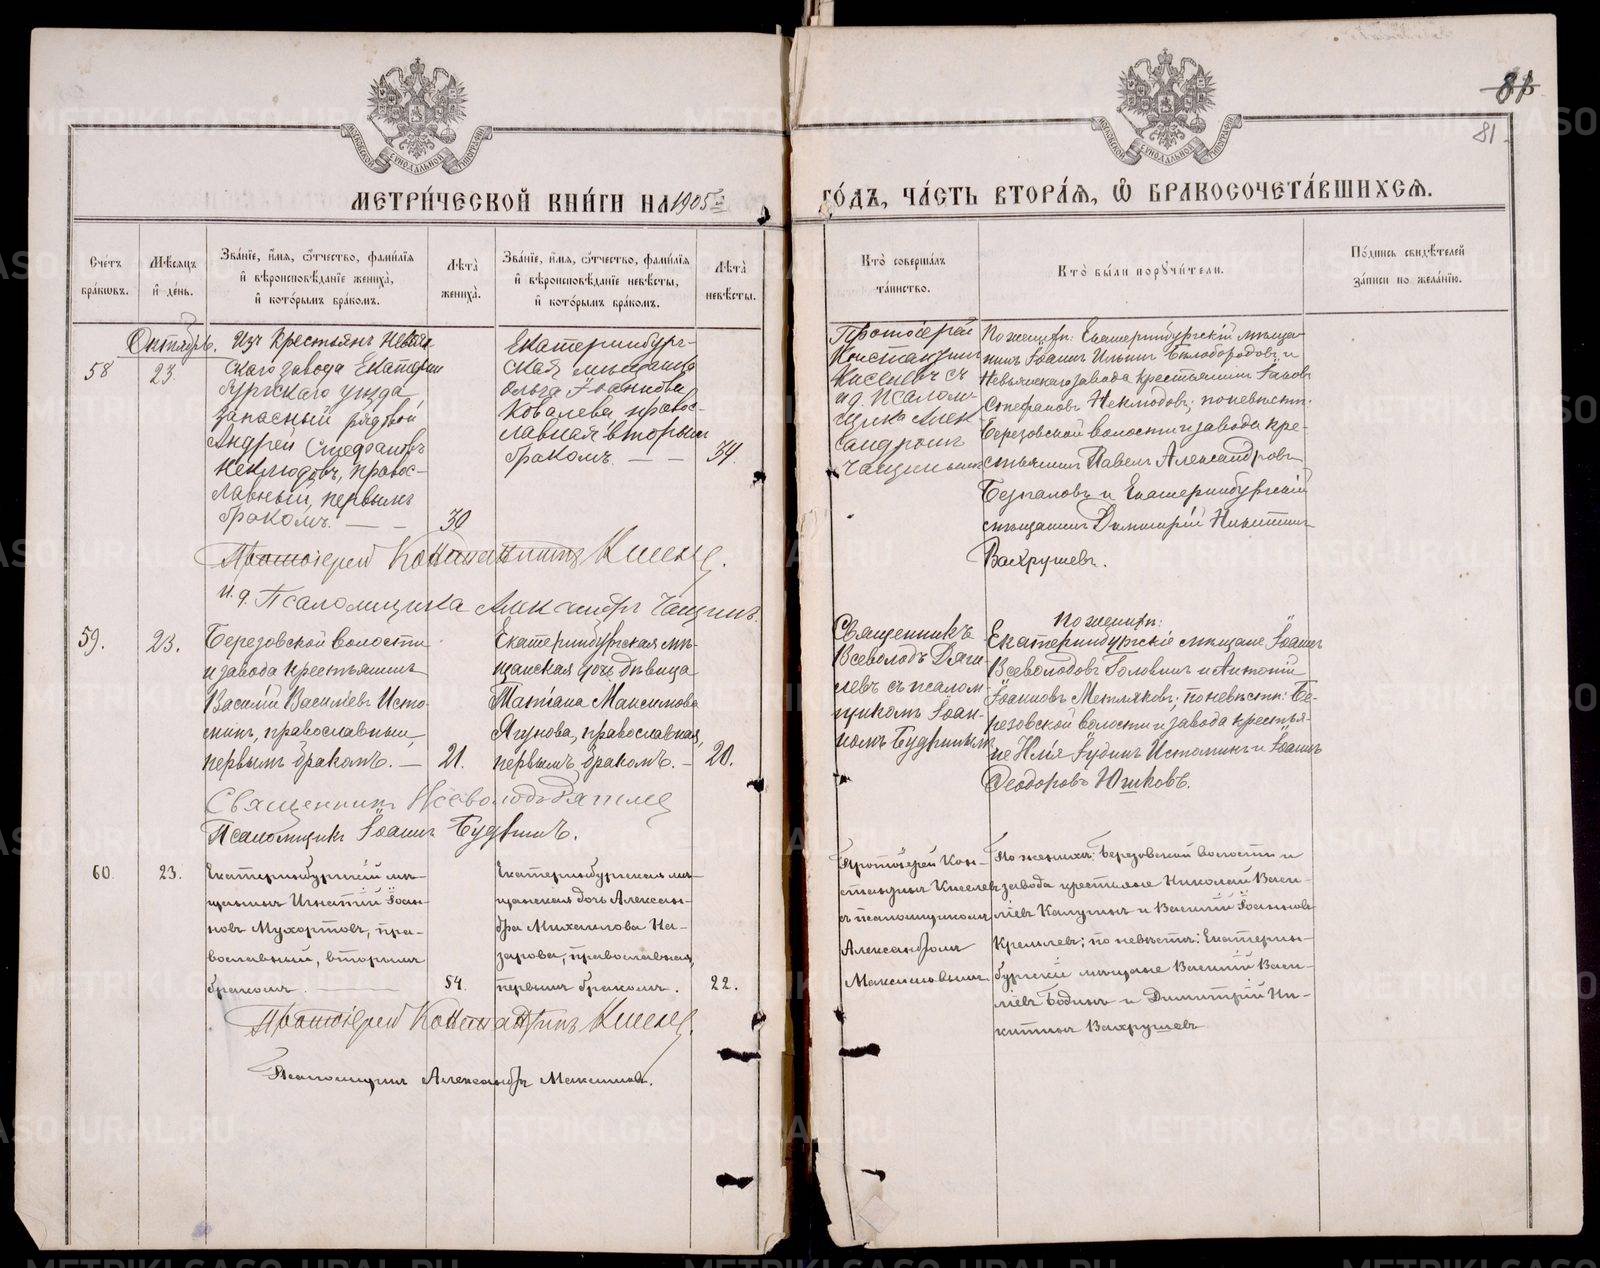 81
МЕТРИ́ЧЕСКОЙ КНИ́ГИ НА 1905й
ГО́ДЪ, ЧА́СТЬ ВТОРА́Я, Ѿ БРАКОСОЧЕТА́ВШИХСЯ.
Сче́тъ бра́ковъ.
Мѣ́сяцъ и҆ де́нь.
Зва́нїе, и҆́мя, ѻ҆́тчество, фами́лїя и҆ вѣроисповѣ́данїе жениха̀, и҆ кото́рымъ бра́комъ.
Лѣта̀ жениха̀.
Зва́нїе, и҆́мя, ѻ҆́тчество, фами́лїя и҆ вѣроисповѣ́данїе невѣ́сты, и҆ кото́рымъ бра́комъ.
Лѣта̀ невѣ́сты.
Кто̀ соверша́лъ та́инство.
Кто̀ бы́ли порꙋчи́тели.
По́дпись свидѣ́телей за́писи по жела́нїю.
Октябрь.
58
23.
Изъ крестьянъ Невьян
скаго завода Екатерин
бургскаго уѣзда
запасный рядовой
Андрей Стефановъ
Неклюдовъ, правос-
лавный, первымъ
бракомъ.
30
Екатеринбург-
ская мѣщанка
Ольга Іоаннова
Ковалева, правос-
лавная, вторымъ
бракомъ.
34.
Протоіерей
Константинъ
Киселевъ съ
и.д. Псалом-
щика Алек
сандромъ
Чащинымъ
По женихѣ: Екатеринбургскій мѣща-
нинъ Іоаннъ Ильинъ Бѣлобородовъ и
Невьянскаго завода крестьянинъ Іаковъ
Стефановъ Неклюдовъ; по невѣстѣ:
Березовской волости и завода кре-
стьянинъ Павелъ Александровъ
и Екатеринбургскій
мѣщанинъ Димитрій Никитинъ
Вахрушевъ.
Протоіерей Константинъ Киселевъ.
и.д. Псаломщика Александръ Чащинъ.
59.
23.
Березовской волости
и завода крестьянинъ
Василій Васильевъ Исто-
минъ, православный,
первымъ бракомъ.
21.
Екатеринбургская мѣ-
щанская дочь дѣвица
Татіана Максимова
Ягунова, православная,
первымъ бракомъ.
20.
Священникъ
Всеволодъ Дяги
левъ съ псалом-
щикомъ Іоан-
номъ Будринымъ
По женихѣ:
Екатеринбургскіе мѣщане Іоаннъ
Всеволодовъ Головинъ и Антоній
Іоанновъ Метляковъ; по невѣстѣ: Бе-
резовской волости и завода крестья-
не Илія Іудинъ Истоминъ и Іоаннъ
Ѳеодоровъ Юшковъ.
Священникъ Всеволодъ Дягилевъ
Псаломщикъ Іоаннъ Будринъ.
60.
23.
Екатеринбургскій мѣ-
щанинъ Игнатій Іоан-
новъ Мухортовъ, пра-
вославный, вторымъ
бракомъ.
54.
Екатеринбургская мѣ-
щанская дочь Алексан-
дра Михаилова На-
зарова, православная,
первымъ бракомъ.
22.
Протоіерей Кон-
стантинъ Киселевъ
съ псаломщикомъ
Александромъ
Максимовымъ
По женихѣ: Березовской волости и
завода крестьяне Николай Васи-
ліевъ Калугинъ и Василій Іоанновъ
Кремлевъ; по невѣстѣ: Екатерин-
бургскій мѣщане Василій Васи-
ліевъ Бодинъ и Димитрій Ни-
китинъ Вахрушевъ
Протоіерей Константинъ Киселевъ.
Псаломщикъ Александръ Максимовъ.
METRIKI.GASO-URAL.RU